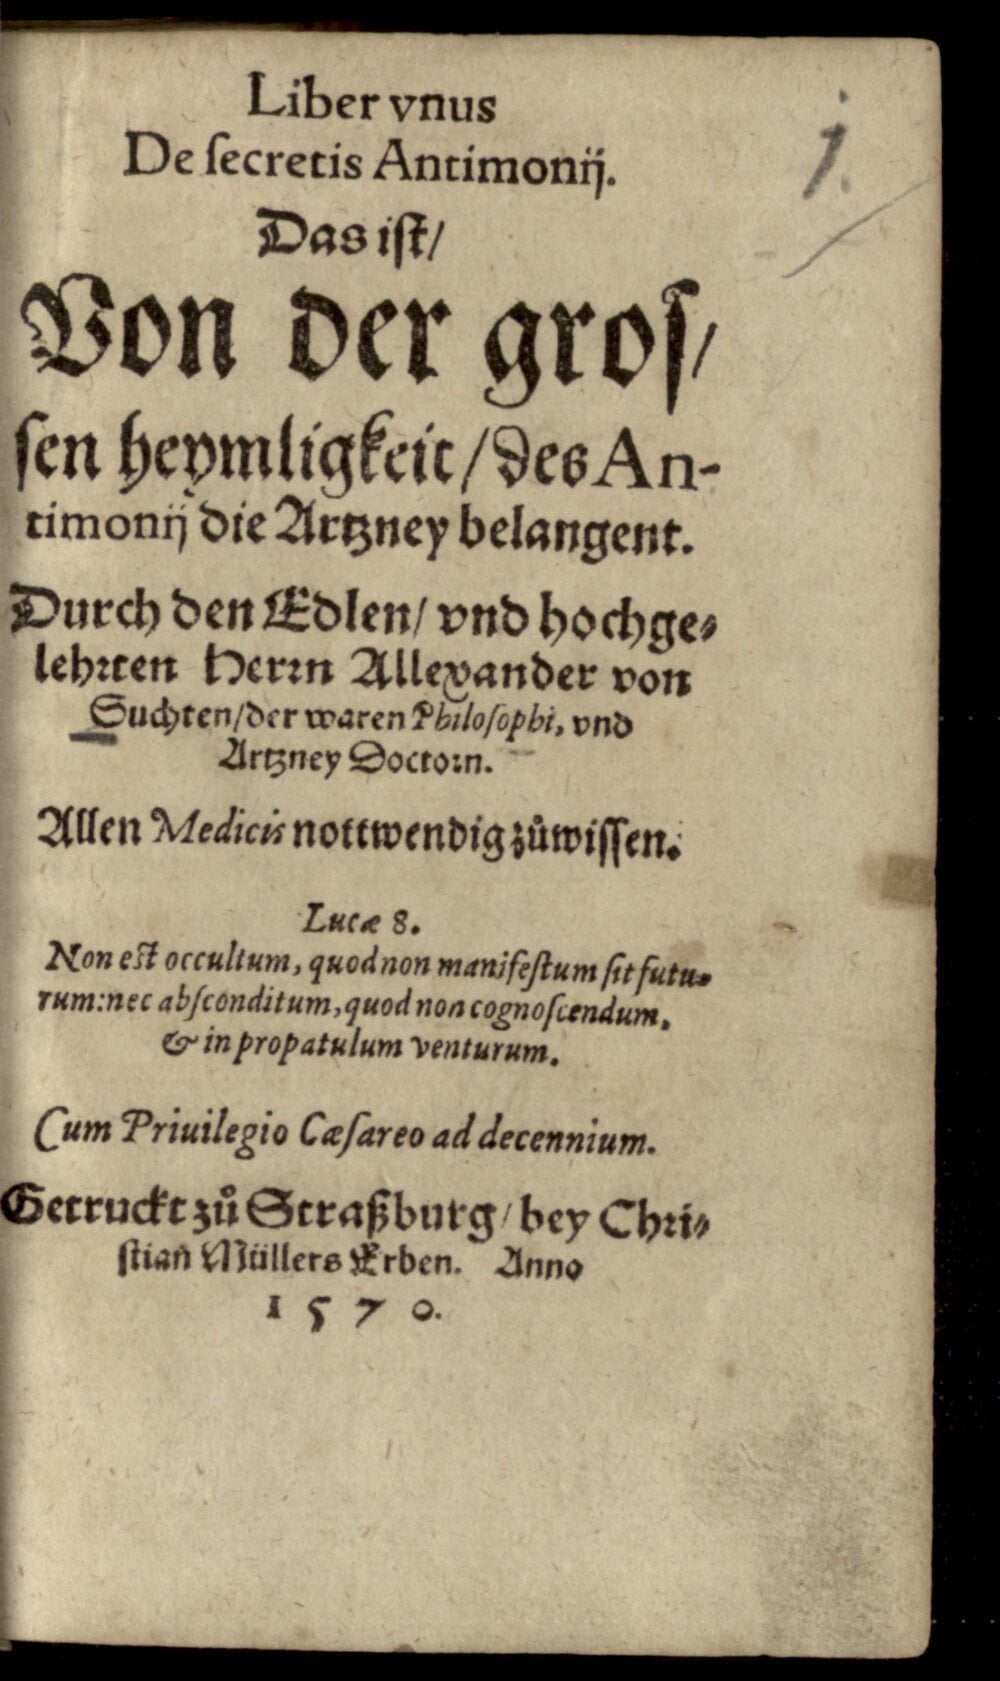 Liber vnus
De ſecretis Antimonij.
1.
Das iſt/
Von der groſ/
ſen heymligkeit/ des An-
timonij die Artzney belangent.
Durch den Edlen/ vnd hochge-
lehrten Herrn Allexander von
Suchten/ der waren Philoſophi, vnd
Artzney Doctorn.
Allen Medicis nottwendig zůwiſſen.
Lucæ 8.
Non est occultum, quod non manifeſtum ſit futu-
rum: nec abſconditum, quod non cognoſcendum,
& in propatulum venturum.
Cum Priuilegio Cæſareo ad decennium.
Getruckt zů Straßburg/ bey Chri-
ſtian̄ Müllers Erben. Anno
1570.